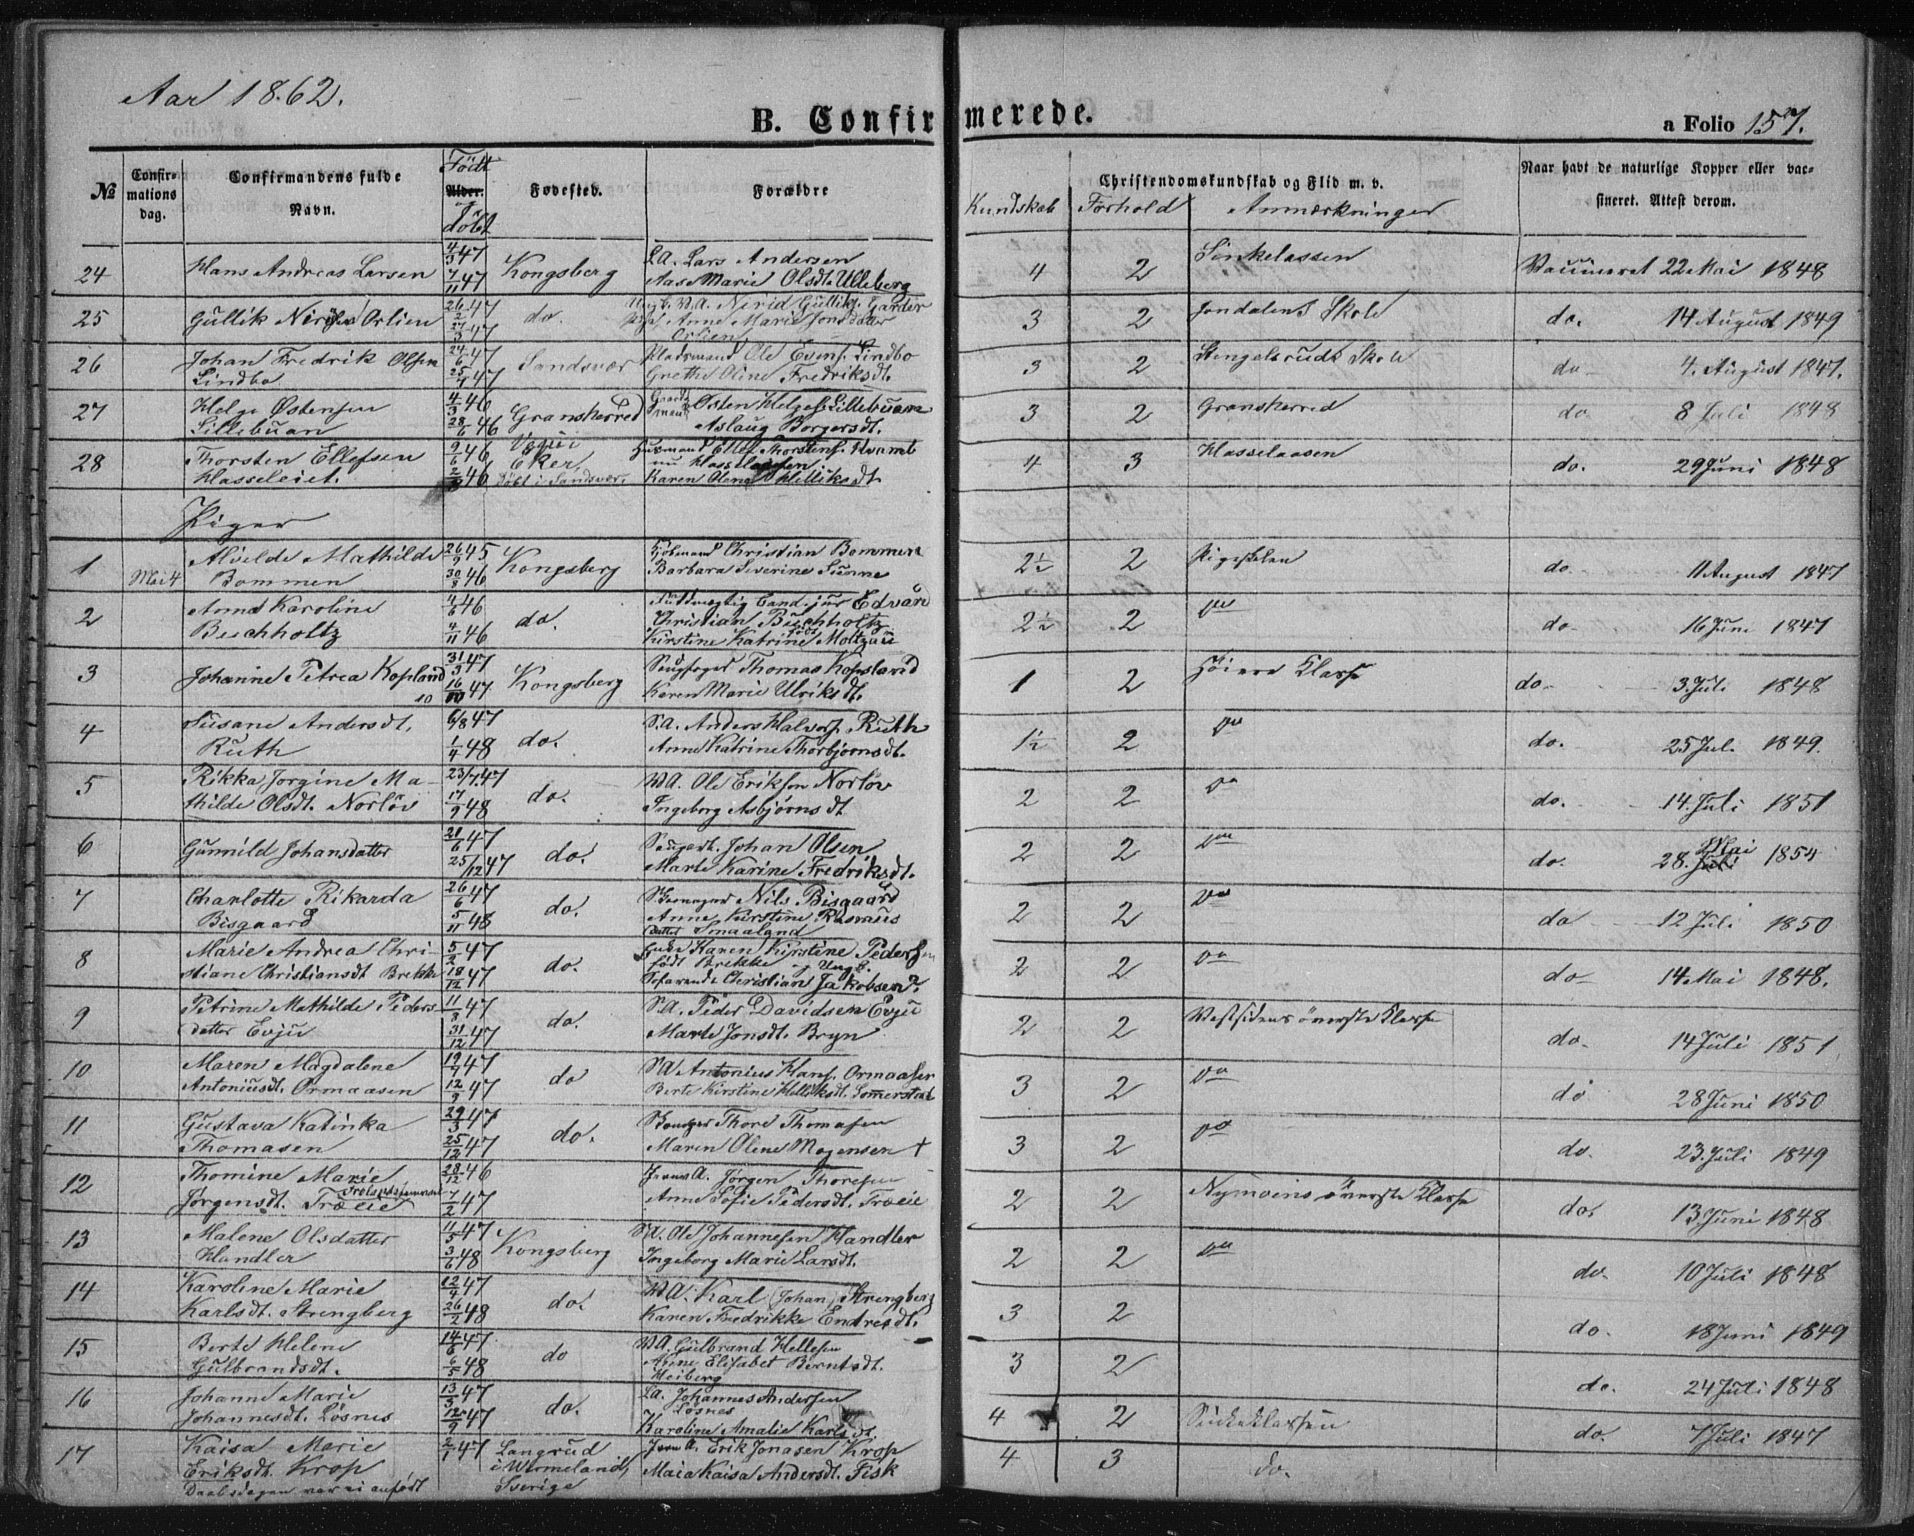 Aar 1862.
B. Confirmerede.
a Folio 157.
No
Confirmations dag.
Confirmandens fulde Navn.
Födt Alder. Döbt
Fødested.
Forældre
Christendomskundskab og Flid m. v.
Kundskab Forhold Anmærkninger
Naar havt de naturlige Kopper eller vaccineret. Attest derom.
24 Hans Andreas Larsen 4/3 47 7/11 47 Kongsberg L.A. Lars Andersen Aase Marie Olsdt. Ulleberg 4 2 22 Mai 1848
25 Gullik Orlien 26/2 47 27/3 47 do. Nerid Gulliks. Garder Anne Marie Jonsdatter Orlien 3 2 Jondalens Skole do. 14 August 1849
26 Johan Fredrik Olsen Lindbo 24/6 47 25/7 47 Sandsvær Pladsmand Ole Evens. Lindbo Grethe Oline Fredriksdt. 3 2 Stengelsruds Skole do 4. August 1847.
27 Helge Østensen Lillebuan 4/3 46 28/6 46 Granskerred Gaardmand Østen Helges. Lillebuan Aslaug Borgersdt. 3 2 Granskerred do 8 Juli 1848
28 Thorsten Ellefsen Hasseleiet. 9/6 46 Eker, Döbt i Sandsvær. Husmand Ellef Thorstens. Kvamt nu Hasselaasen Karen Olena Helliksdt. 4 3 Hasselaasen do. 29 Juni 1848
Piger
1 Mai 4 Alvilde Mathilde Bommen 26/9 45 30/8 46 Kongsberg Kjöbmand Christian Bommen Barbara Severine Sunne 2½ 2 Pigeskolen do 11 August 1847
2 Anna Karoline Buchholtz 4/6 46 4/11 46 do. Fuldmægtig Cand. jur Edvard Christian Buchholtz Kirstine Katrine födt Moltzau 2½ 2 do 16 Juni 1847
3 Johanne Petrea Kopland 31/3 47 16/10 47 10 Kongsberg Thomas Kopsland Karen Marie Ulriksdt. 1 2 Höiere Klasse do 3 Juli 1848
4 Susane Andersdt. Ruth 6/8 47 1/4 48 do. S.A. Anders Halvors. Ruth Anne Katrine Thorbjornsdt. 1½ 2 do. 25 Jul. 1849.
5 Rikka Jorgine Mathilde Olsdt. Norløv 23/7 47 17/9 48 do. W.A. Ole Eriksen Norløv Ingeborg Asbjørnsdt 2 2 do. 14 Juli 1851
6 Gunnild Johansdatter 21/6 47 25/12 47 do. Johan Olsen Marte Karine Fredriksdt. 2 2 do. 28. Mai Juli 1854
7 Charlotte Rikarda Bisgaard 26/6 47 5/11 48 do. Nils Bisgaard Anne Kirstine Rasmusdatter Smaaland 2 2 do 12 Juli 1850
8 Marie Andrea Christiane Christiansdt Brekke 5/2 47 18/12 47 do. Enke Karen Kirstine Pedersen födt Brekke, Ungk. Sofarende Christian Jakobsen. 2 2 do 14 Mai 1848.
9 Petrine Mathilde Pedersdatter Evju 11/8 47 31/12 47 do. S.A. Peder Davidsen Evju Marte Jonsdt. Bryn 2 2 Vestsidens överste Klasse do. 14 Juli 1851
10 Maren Magdalene Antoniusdt. Ormaasen 19/7 47 12/9 47 do S.A. Antonius Hans. Ormaasen Berte Kirstine Helliksdt. Somerstad 3 2 do 28 Juni 1850
11 Gustava Katinka Thomasen 29/3 47 25/12 47 do. Thore Thomasen Maren Olene Mogensen + 3 2 do. 23. Juli 1849
12 Thomine Marie Jørgensdt. Træeie 28/12 46 7/2 47 Jørgen Thoresen Anne Sofie Pedersdt. Træeie 2 2 Nymoens överste Klasse do. 13 Juni 1848
13 Malene Olsdatter Handler 11/5 47 3/6 48 Kongsberg S.A. Ole Johannesen Handler Ingeborg Marie Larsdt. 2 2 do. 10 Juli 1848
14 Karoline Marie Karlsdt. Strengberg 12/4 47 26/2 48 do. W.A. Karl (Johan) Strengberg Karen Fredrikke Endresdt. 3 2 do. 18 Juni 1849
15 Berte Helene Gulbrandsdt. 14/6 47 6/5 48 do W.A. Gulbrand Hellesen Anne Elisabet Berntsdt. Heiberg 3 2 do. 24 Juli 1848
16 Johanne Marie Johannesdt. Løsnes 13/3 47 12/9 47 do. L.A. Johannes Andersen Løsnes Karoline Amalie Karlsdt. 4 2 do. 7 Juli 1847
17 Kaisa Marie Eriksdt. Krop 2/1 47 Langrud i Wermeland, Sverige Erik Jonasen Krop Maia Kaisa Andersdt. Fisk 4 3 do.
Daabsdagen var ei anfört